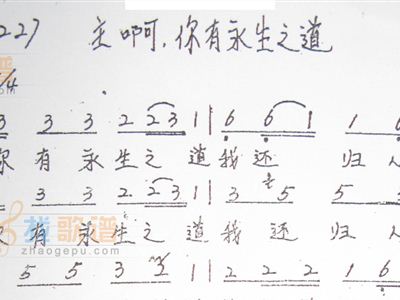 227) 主啊,你有永生之道
/4
3 3 3 2 23 1 | 6 6 1 1 6
你 有 永 生 之 道 我 还 归 人
3 3 2 23 1 | 3 5 5 3
有 永 生 之 道 我 还 归 人
找歌谱
zhaogepu.com
5 5 3 2 1 | 2 2 2 1 6